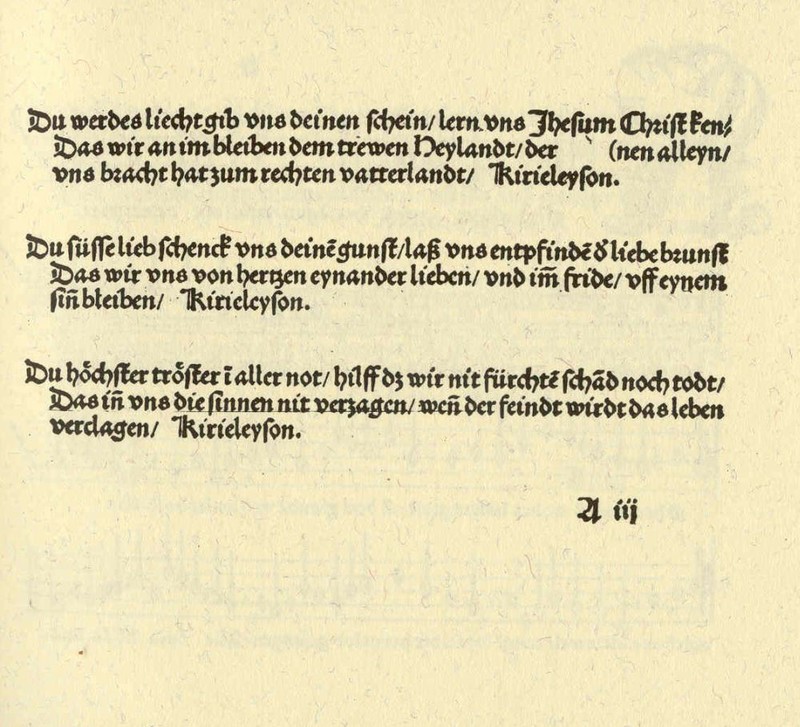 Du werdes liecht gib vns deinen schein/ lern vns Jhesum Christ ken/
Das wir an im bleiben dem trewen Heylandt/ der (nen alleyn/
vns bracht hat zum rechten vatterlandt/ Kirieleyson.
Du süsse lieb schenck vns deinē gunst/ laß vns entpfindē d̕ liebe brunst
Das wir vns von hertzen eynander lieben/ vnd im̄ fride/ vff eynem
sin̄ bleiben/ Kirieleyson.
Du hoͤchster troͤster ī aller not/ hilff dz wir nit fürchtē schād noch todt/
Das in̄ vns die sinnen nit verzagen/ wen̄ der feindt wirdt das leben
verclagen/ Kirieleyson.
A iij